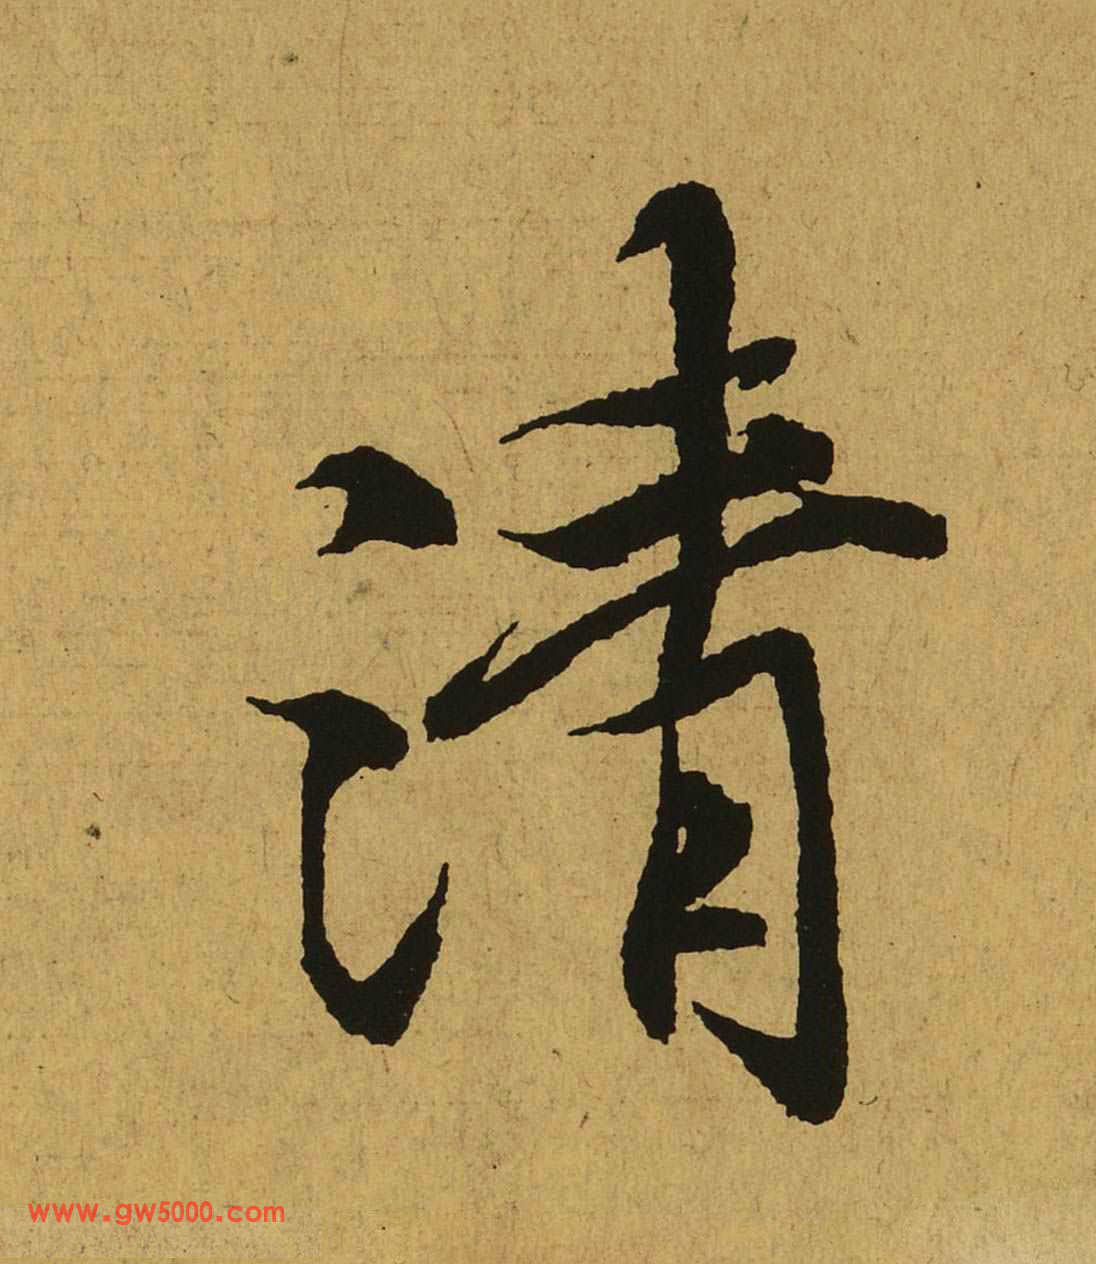 清
www.gw5000.com